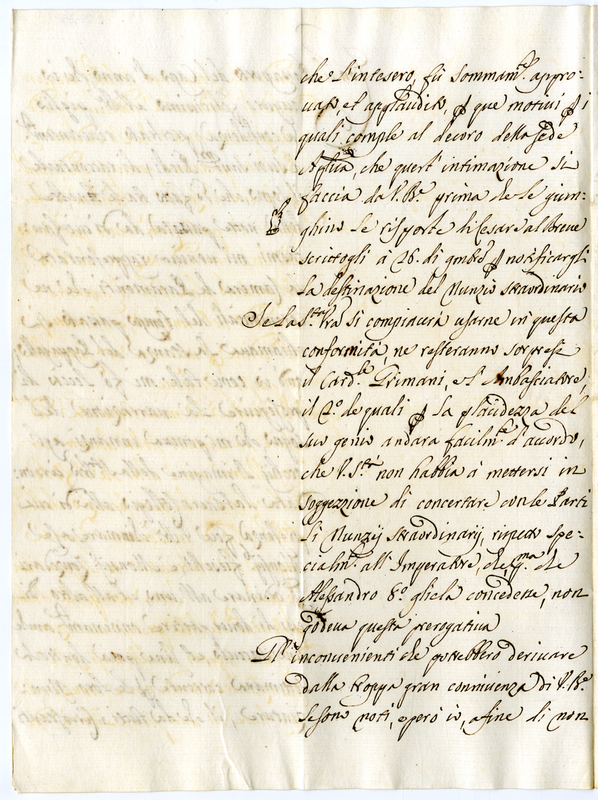 che l'intesero, fù sommam.te appro-
uato, et applaudito, p que motiui p i
quali comple al decoro della sede
Ap.lica, che quest'intimazione si
faccia da V. B.e prima che le giun-
ghino le risposte di Cesare al Breue
scrittogli à 26. di p notificargli
la destinazione del Nunzio straordinario
Se la S.tà Vra si compiacerà usarne in questa
conformità, ne resteranno sorpresi
il Card.le Grimani, e l'Ambasciatore,
il 2.o de quali p la placidezza del
suo genio andarà facilm.te d'accordo,
che V. S.tà non habbia à mettersi in
soggezzione di concertare con le Parti
li Nunzij straordinarij, rispetto spe-
cialm.te all'Imperatore, che, p.ma che
Alessandro 8.o gliela concedesse, non
godeua questa prerogatiua
Gl'inconuenienti che potrebbero deriuare
dalla troppa gran conniuenza di V. B.e
le sono noti, e però io, a fine di non